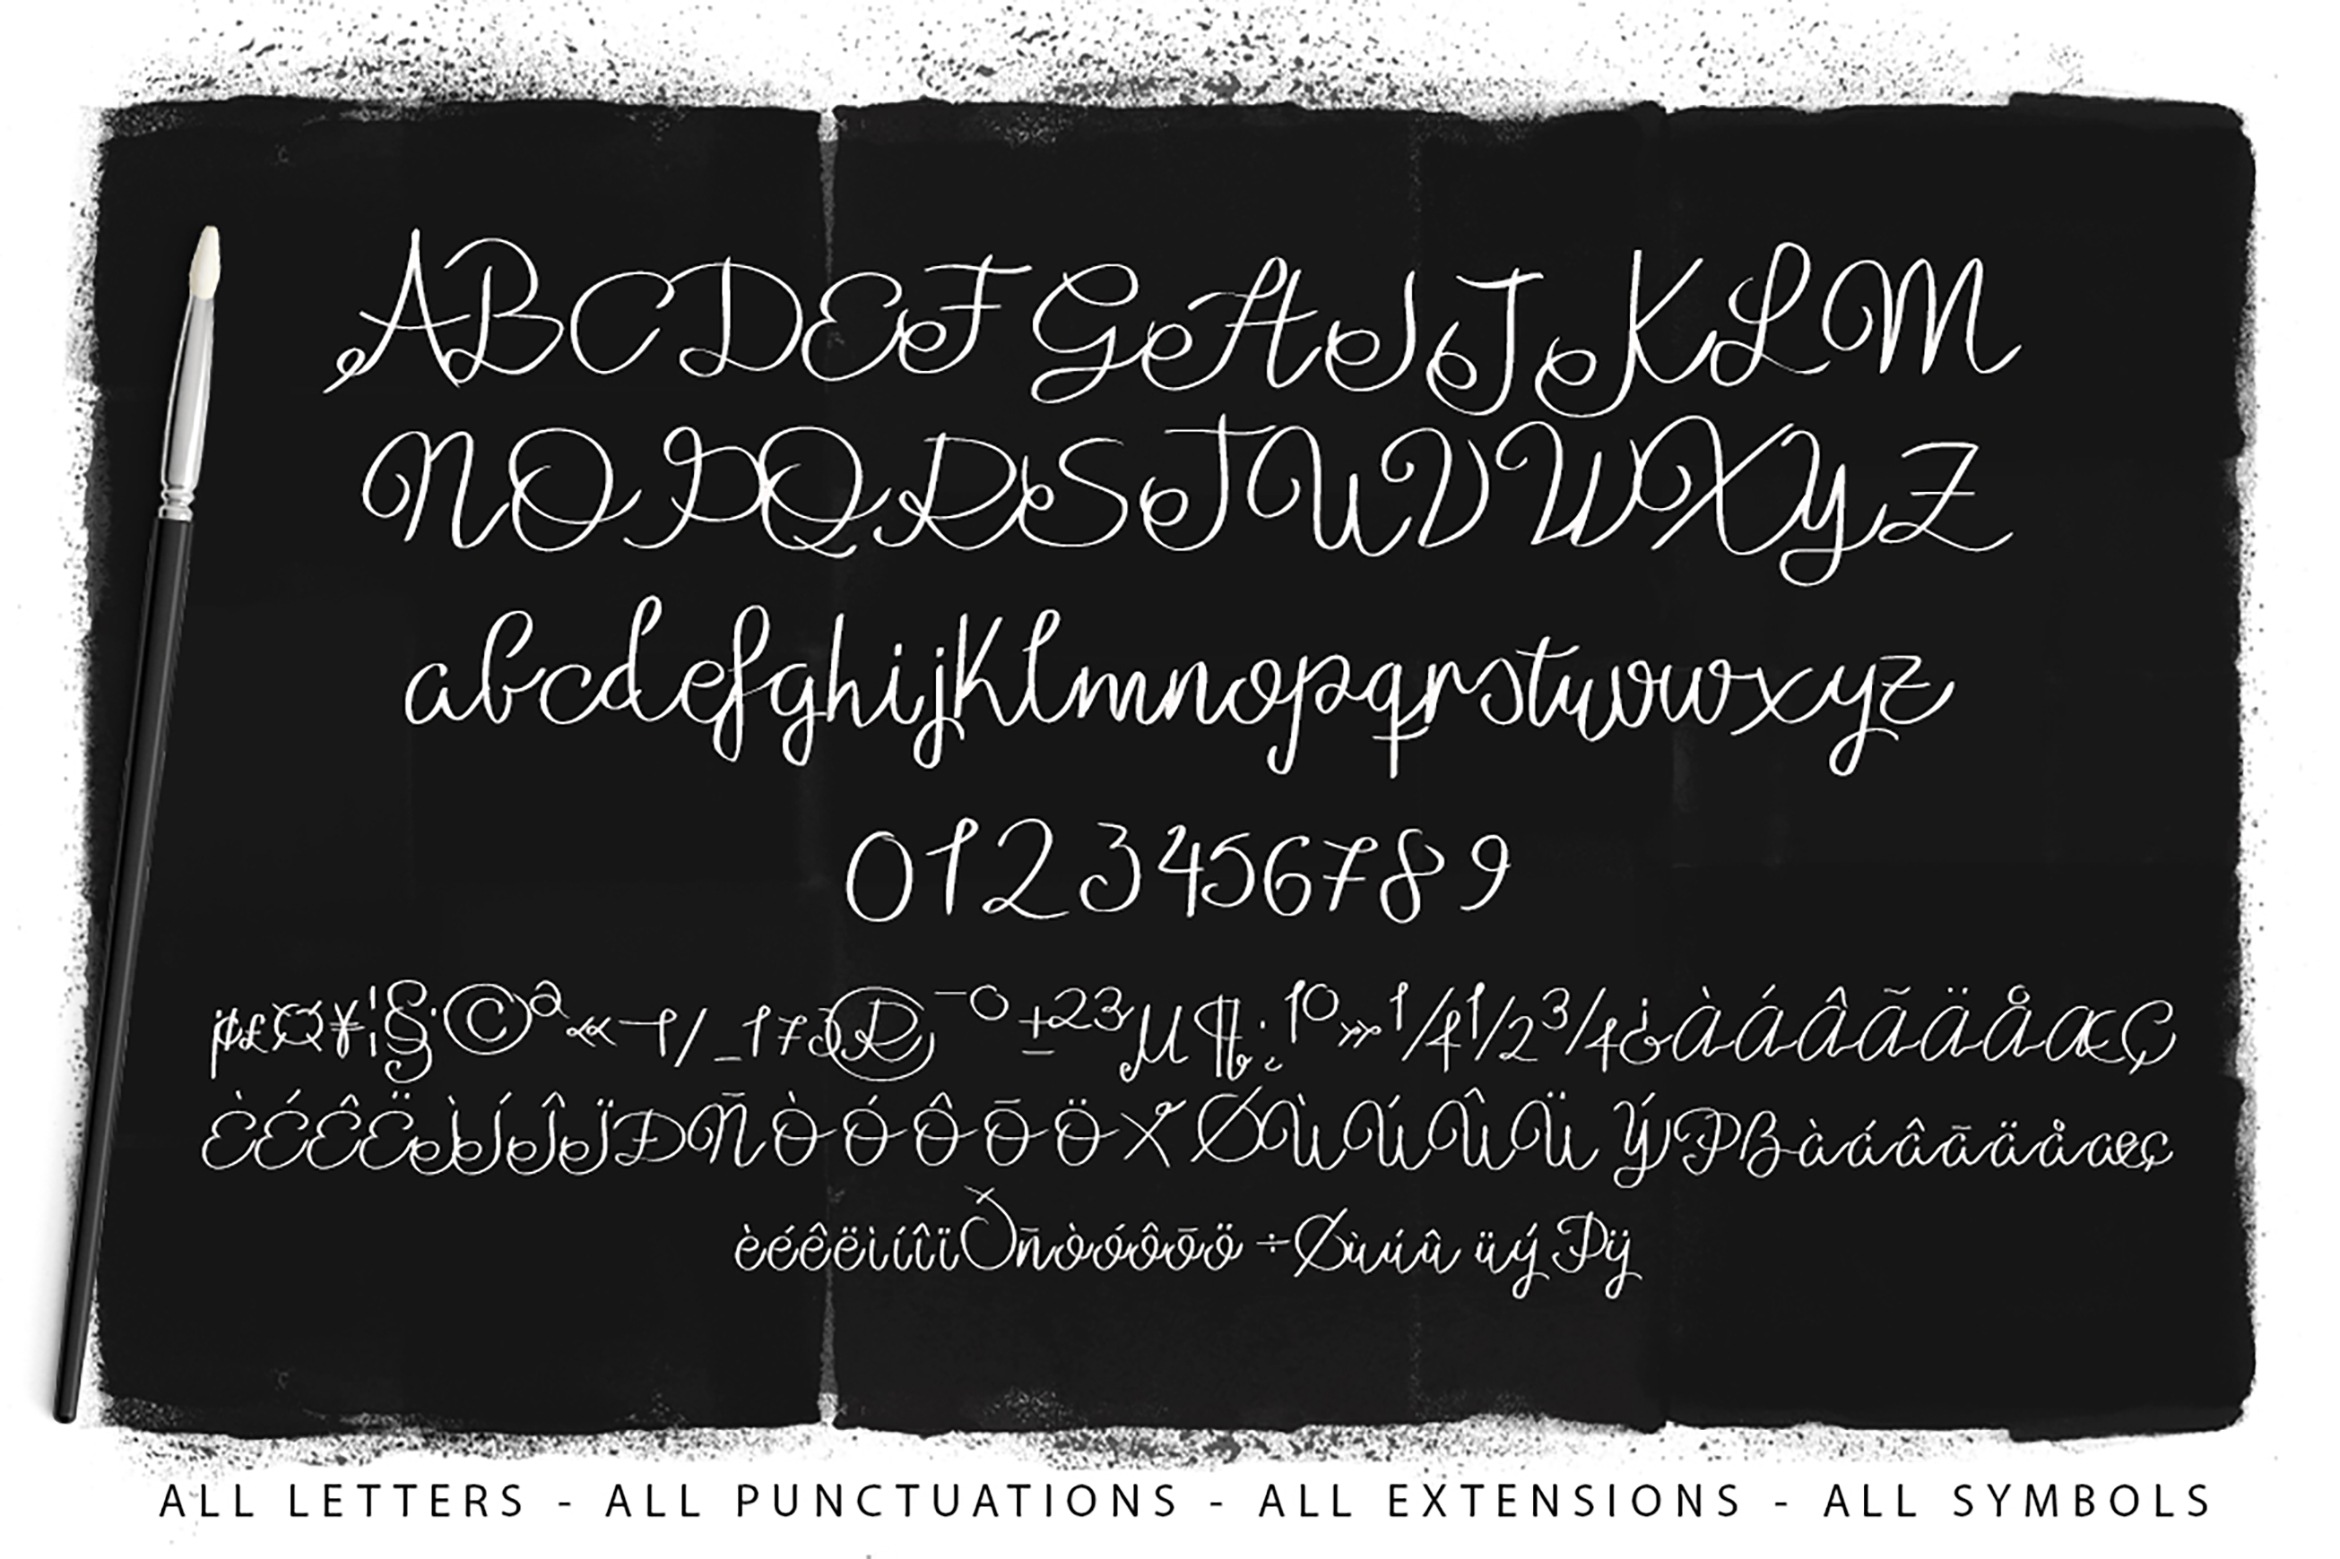 ABCDEFGHIJKLM
NOPQRSTUVWXYZ
abcdefghijklmnopqrstuvwxyz
0123456789
¡¢£¤¥¦§¨©ª«¬/_173®¯°±23µ¶·¸¹º»1/41/23/4¿ÀÁÂÃÄÅÆÇ
ÈÉÊËÌÍÎÏÐÑÒÓÔÕÖ×ØÙÚÛÜÝÞßàáâãäåæç
èéêëìíîïðñòóôõö÷øùúûüýþÿ
ALL LETTERS - ALL PUNCTUATIONS - ALL EXTENSIONS - ALL SYMBOLS